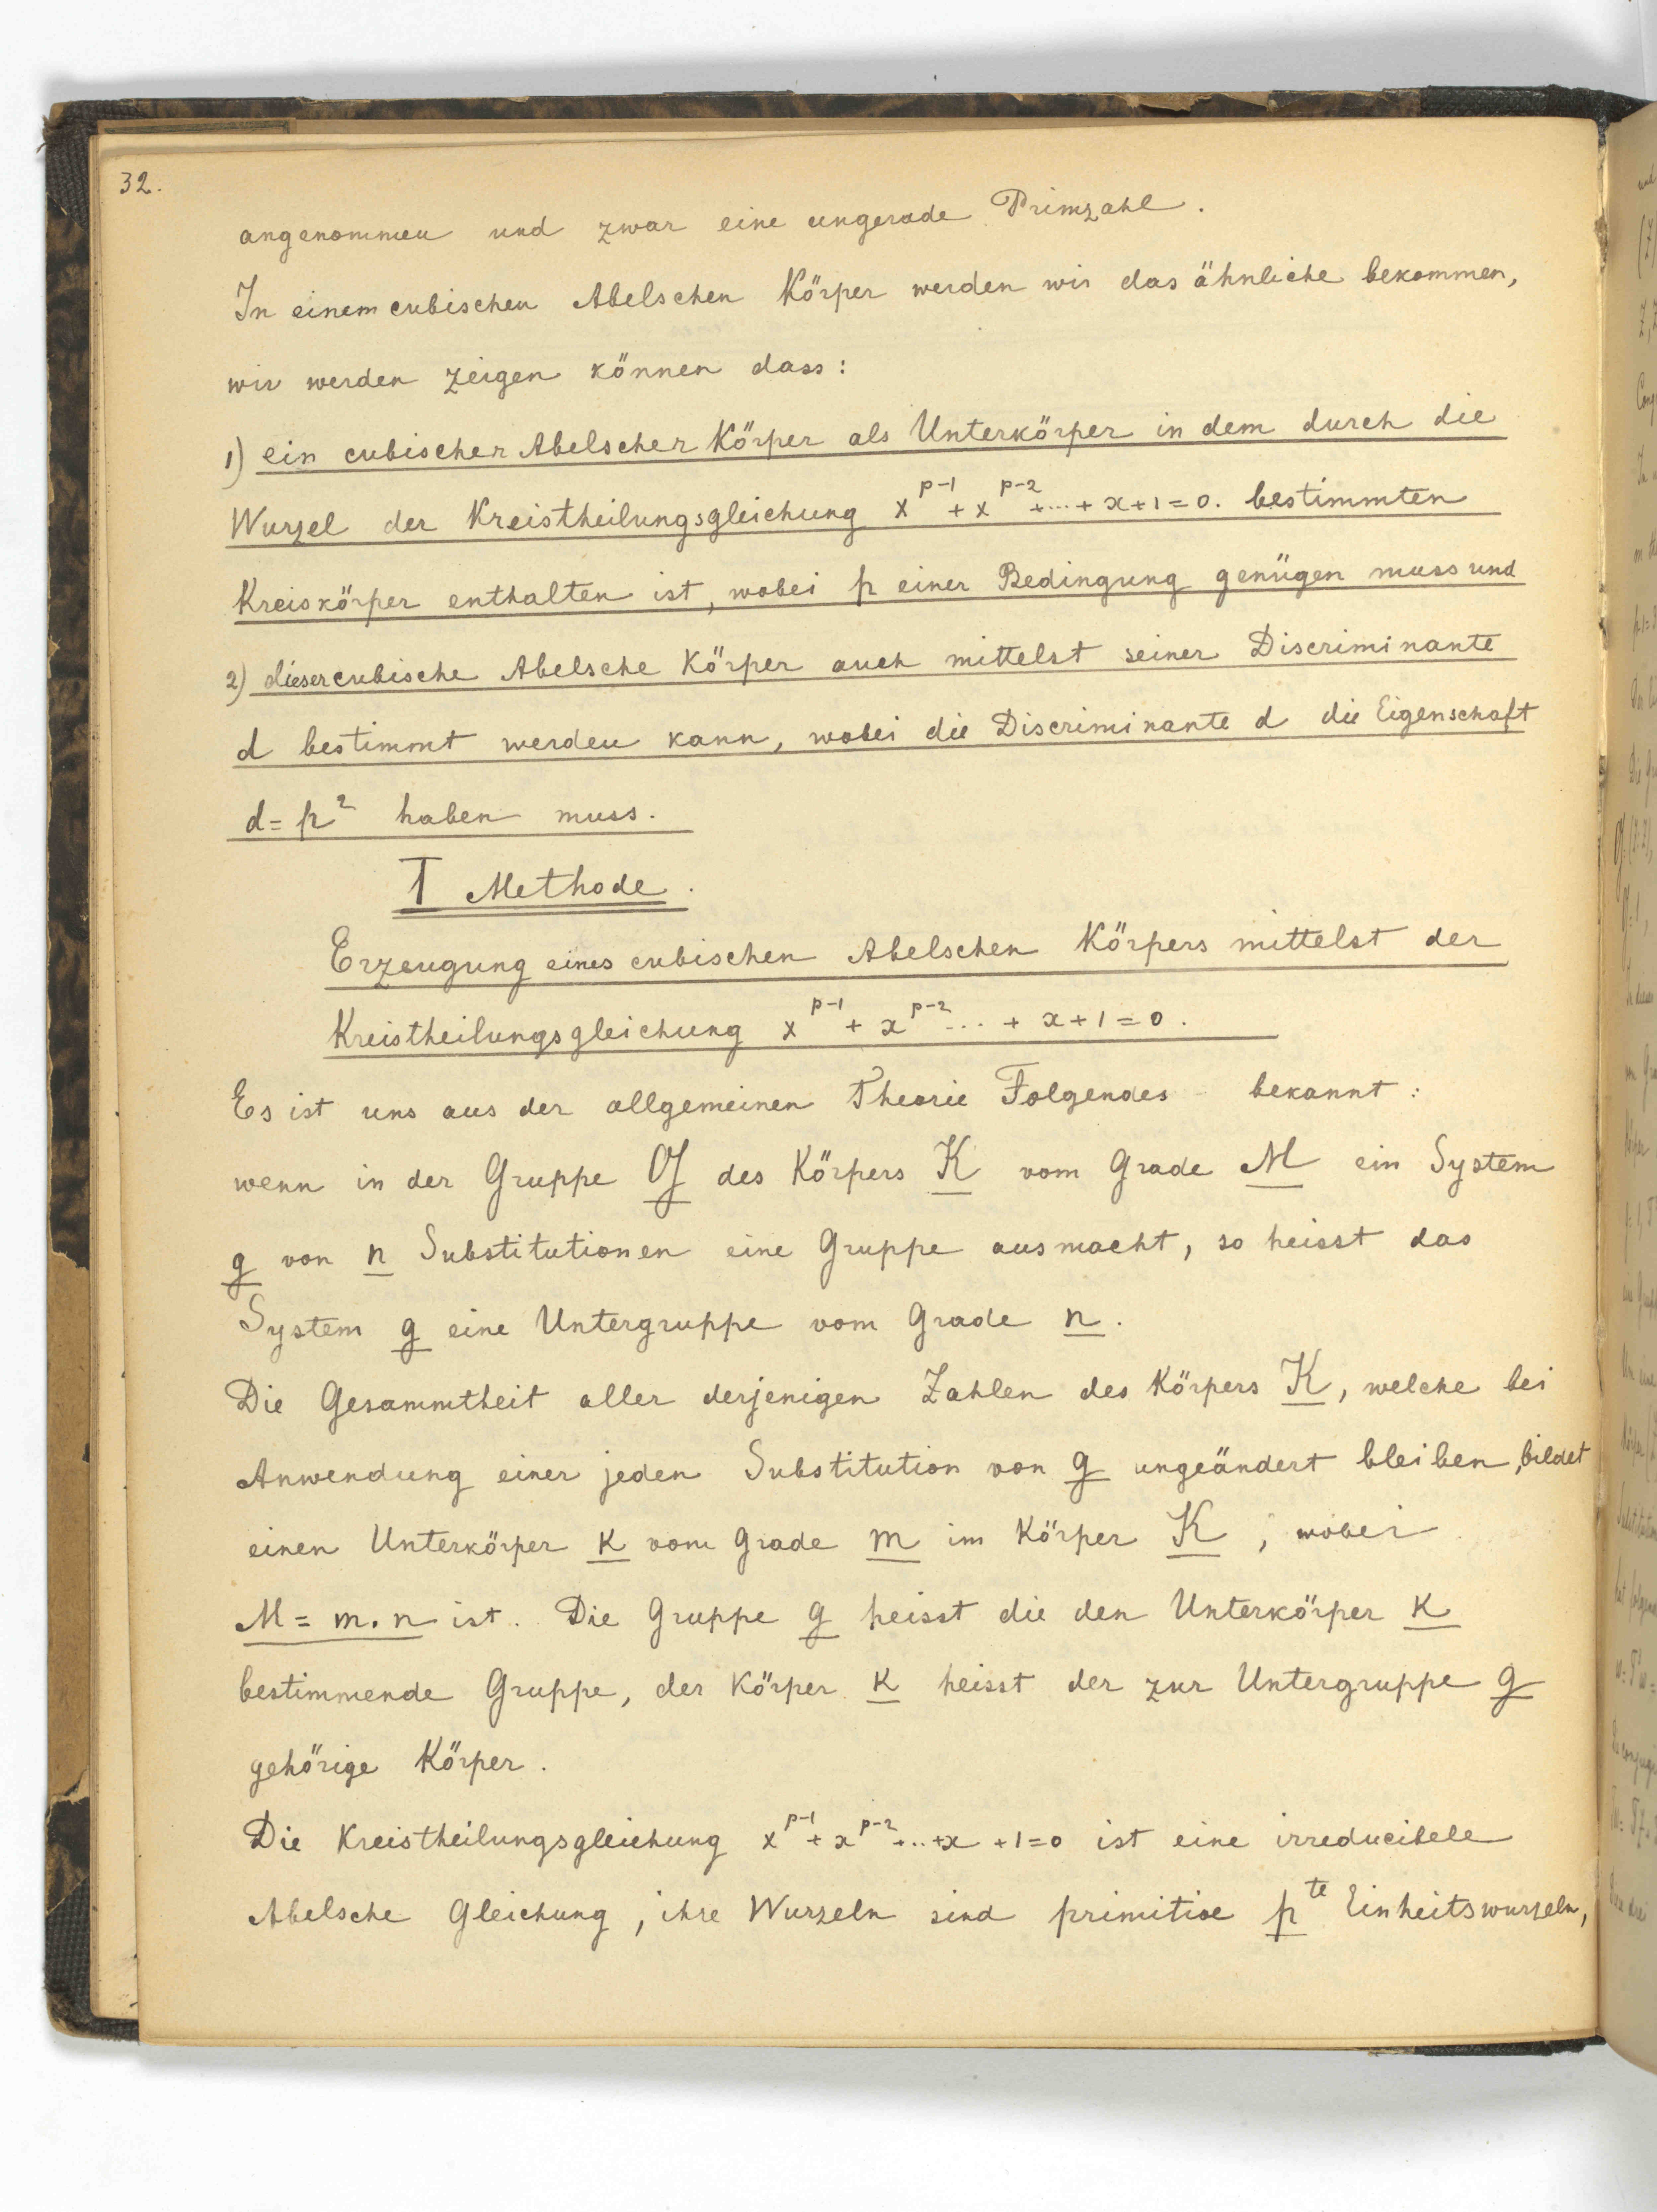 32.
angenommen und zwar eine ungerade Primzahl.
In einem cubischen Abelschen Körper werden wir das ähnliche bekommen,
wir werden zeigen können dass:
1) ein cubischer Abelscher Körper als Unterkörper in dem durch die
Wurzel der Kreistheilungsgleichung x^{p-1} + x^{p-2} + ... + x + 1 = 0. bestimmten
Kreiskörper enthalten ist, wobei p einer Bedingung genügen muss und
2) dieser cubische Abelsche Körper auch mittelst seiner Discriminante
d bestimmt werden kann, wobei die Discriminante d die Eigenschaft
d = p² haben muss.
I Methode.
Erzeugung eines cubischen Abelschen Körpers mittelst der
Kreistheilungsgleichung x^{p-1} + x^{p-2} ... + x + 1 = 0.
Es ist uns aus der allgemeinen Theorie Folgendes bekannt:
wenn in der Gruppe G des Körpers K vom Grade M ein System
g von n Substitutionen eine Gruppe ausmacht, so heisst das
System g eine Untergruppe vom Grade n.
Die Gesammtheit aller derjenigen Zahlen des Körpers K, welche bei
Anwendung einer jeden Substitution von g ungeändert bleiben, bildet
einen Unterkörper k vom Grade m im Körper K, wobei
M = m.n ist. Die Gruppe g heisst die den Unterkörper k
bestimmende Gruppe, der Körper k heisst der zur Untergruppe g
gehörige Körper.
Die Kreistheilungsgleichung x^{p-1} + x^{p-2} + ... + x + 1 = 0 ist eine irreducibele
Abelsche Gleichung, ihre Wurzeln sind primitive p^{te} Einheitswurzeln,